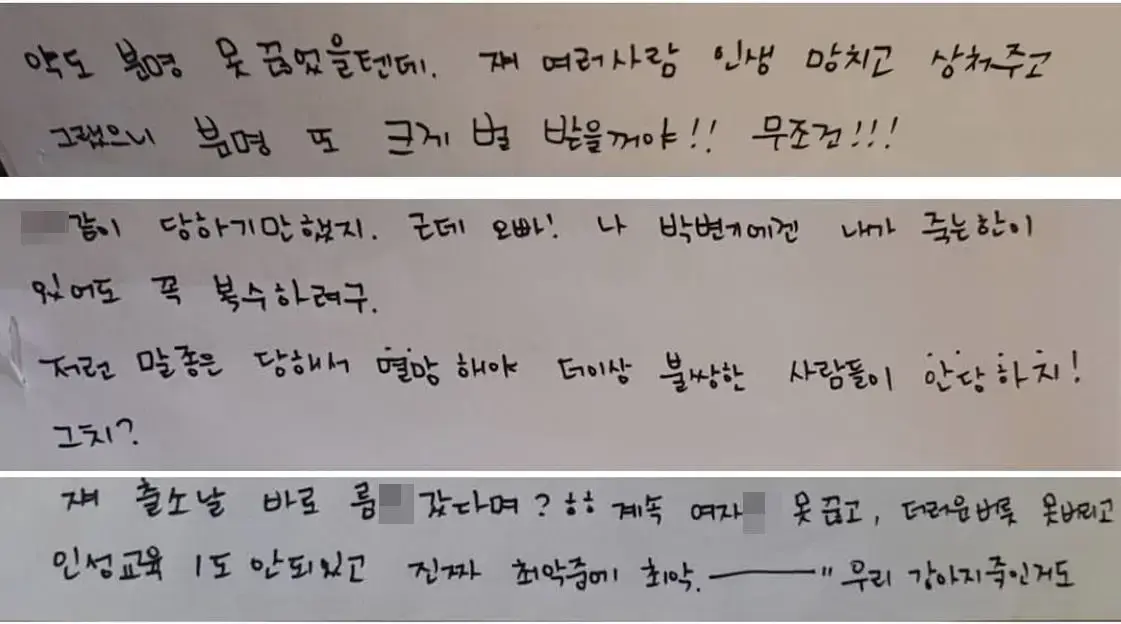 약도 분명 못 끊었을텐데. 쟤 여러사람 인생 망치고 상처주고
그랬으니 분명 또 크게 벌 받을꺼야!! 무조건!!!
같이 당하기만했지. 근데 오빠! 나 박변기에겐 내가 죽는한이
있어도 꼭 복수하려구.
저런 말종은 당해서 멸망해야 더이상 불쌍한 사람들이 안당하지!
그치?
쟤 출소날 바로 룸 갔다며? ㅎㅎ 계속 여자 못끊고, 더러운버릇 못버리고
인성교육 1도 안되있고 진짜 최악중에 최악. ——" 우리 강아지죽인거도